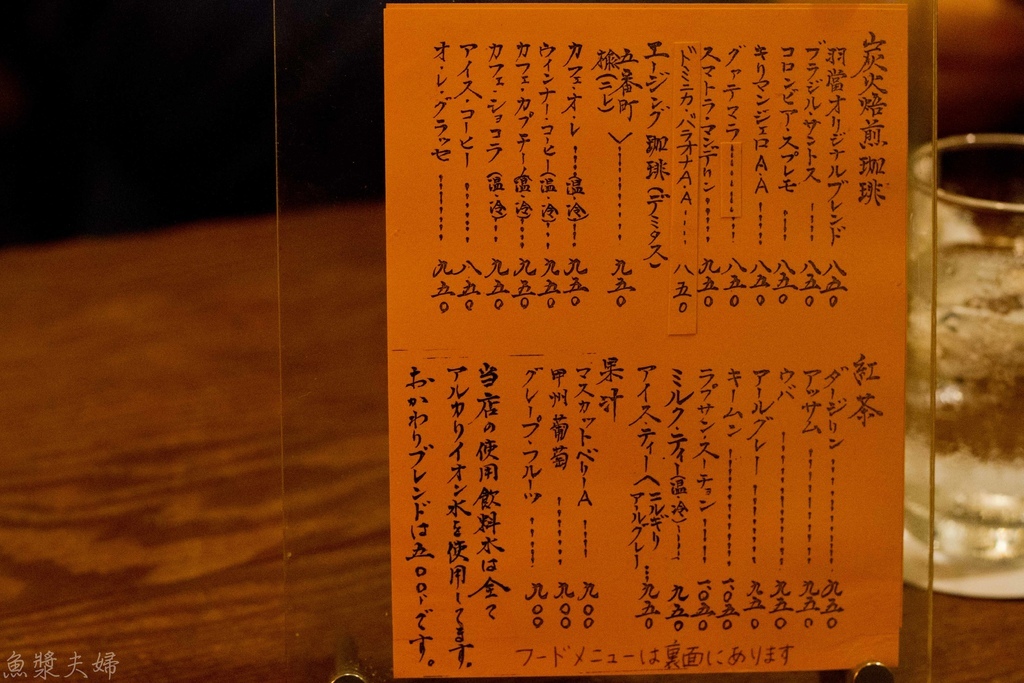 炭火焙煎珈琲
羽當オリジナルブレンド 八五〇
ブラジル・サントス 八五〇
コロンビア・スプレモ 八五〇
キリマンジェロA・A 八五〇
グァテマラ 八五〇
スマトラ・マンデリン 九五〇
ドミニカ・バラオナA・A 八五〇
エージング珈琲(デミタス)
五番町
楡(ニレ) 九五〇
カフェ・オ・レ(温・冷) 九五〇
ウィンナー・コーヒー(温・冷) 九五〇
カフェ・カプチーノ(温・冷) 九五〇
カフェ・ショコラ(温・冷) 九五〇
アイス・コーヒー 八五〇
オ・レ・グラッセ 九五〇
紅茶
ダージリン 九五〇
アッサム 九五〇
ウバ 九五〇
アールグレー 九五〇
キームン 一〇五〇
ラプサン・スーチョン 一〇五〇
ミルク・ティー(温・冷) 九五〇
アイス・ティー ニルギリ アールグレー 九五〇
果汁
マスカットベリーA 九〇〇
甲州葡萄 九〇〇
グレープ・フルーツ 九〇〇
当店の使用飲料水は全て
アルカリイオン水を使用してます。
おかわりブレンドは五〇〇です。
フードメニューは裏面にあります
魚漿夫婦